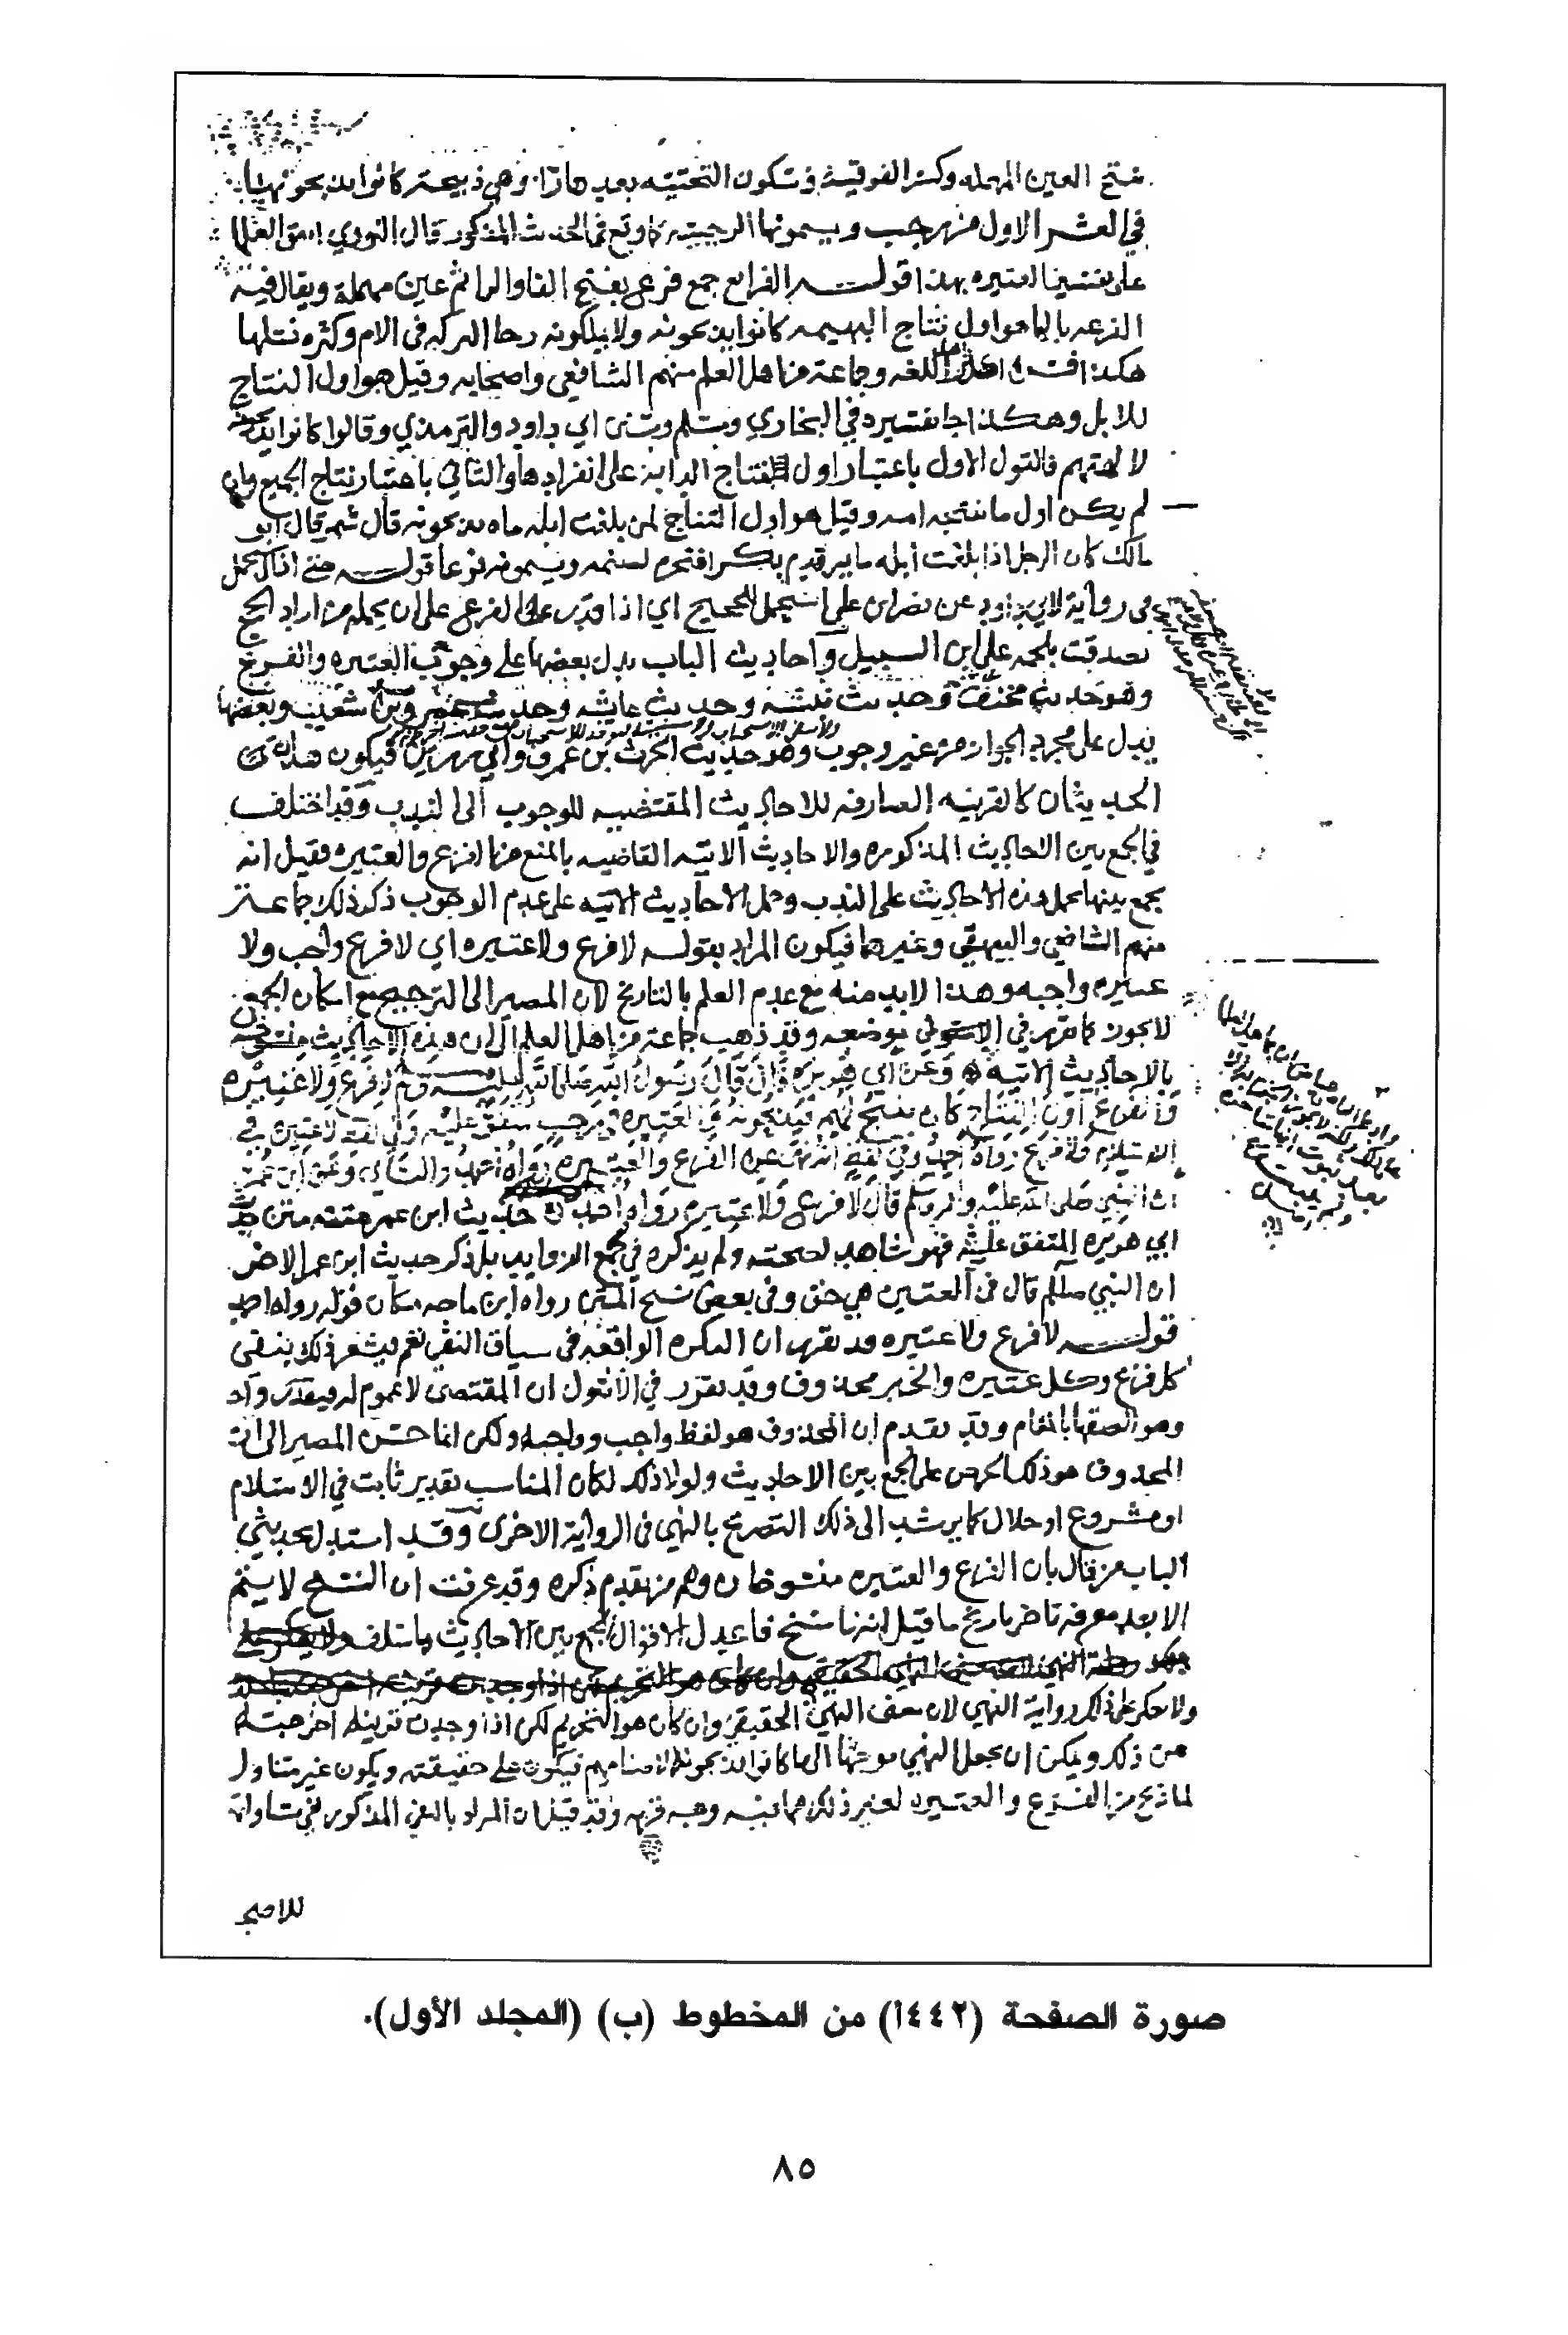 بفتح العين المهملة وكسر الفوقية وسكون التحتية بعدها را وهي ذبيحة كانوا يذبحونها
في العشر الاول من رجب ويسمونها الرجبية كما وقع في الحديث المذكور قال النووي اتفق العلما
على تفسير العتيرة بهذا قوله الفرايع جمع فرع بفتح الفا والرا ثم عين مهملة ويقال فيه
الفرعه بالها هو اول نتاج البهيمه كانوا يذبحونه ولا يملكونه رجا البركه في الام وكثره نسلها
هكذا فسره اهل اللغه وجماعة من اهل العلم منهم الشافعي واصحابه وقيل هو اول النتاج
للابل وهكذا جا تفسيره في البخاري ومسلم وسنن ابي داود والترمذي وقالوا كانوا يذبحونه
لالهتهم فالقول الاول باعتبار اول نتاج الدابة على انفرادها والثاني باعتبار نتاج الجميع وان
لم يكن اول ما تنتجه امه وقيل هو اول النتاج لمن بلغت ابله ماه يذبحونه قال شمر قال ابو
مالك كان الرجل اذا بلغت ابله مايه قدم بكرا فنحره لصنمه ويسمونه فرعا قوله
في رواية لابي داود عن نصر بن علي استحمل للحجيج اي اذا قدر الفرع على ان يحمله من اراد الحج
تصدقت بلحمه على ابن السبيل واحاديث الباب يدل بعضها على وجوب العتيره والفرع
وهو حديث مخنف وحديث نبيشه وحديث عايشه وحديث عمرو بن شعيب وبعضها
يدل على مجرد الجواز من غير وجوب وهو حديث الحرث بن عمرو وابي رزين فيكون هذان
الحديثان كالقرينه الصارفه للاحاديث المقتضيه للوجوب الى الندب وقد اختلف
في الجمع بين الاحاديث المذكوره والاحاديث الاتيه القاضيه بالمنع من الفرع والعتيره فقيل انه
يجمع بينها بحمل هذه الاحاديث على الندب وحمل الاحاديث الاتيه على عدم الوجوب ذكر ذلك جماعة
منهم الشافعي والبيهقي وغيرهما فيكون المراد بقوله لا فرع ولا عتيره اي لا فرع واجب ولا
عتيره واجبه وهذا لا بد منه مع عدم العلم بالتاريخ لان المصير الى الترجيح مع امكان الجمع
لا يجوز كما تقرر في موضعه وقد ذهب جماعة من اهل العلم الى ان هذه الاحاديث منسوخه
بالاحاديث الاتيه وعن ابي هريره قال قال رسول الله صلى الله لا فرع ولا عتيره
والفرع اول النتاج كان ينتج لهم فيذبحونه والعتيرة في رجب متفق عليه وفي لفظ لا عتيرة في
الاسلام ولا فرع رواه احمد وفي لفظ انه نهى عن الفرع والعتيره رواه احمد والنساي وعن ابن عمر
ان النبي صلى الله عليه واله وسلم قال لا فرع ولا عتيره رواه احمد حديث ابن عمر متنه متن حديث
ابي هريره المتفق عليه فهو شاهد لصحته ولم يذكره في مجمع الزوايد بل ذكر حديث ابن عمر الاخر
ان النبي صللم قال في العتيره هي حق وفي بعض نسخ المتن رواه ابن ماجه مكان قوله رواه احمد
قوله لا فرع ولا عتيره قد تقرر ان النكره الواقعه في سياق النفي تعم فيشعر ذلك بنفي
كل فرع وكل عتيره والخبر محذوف وقد تقرر في الاصول ان المقتضى لا عموم له فيقدر واحد
وهو الصقها بالمقام وقد تقدم ان المحذوف هو لفظ واجب وواجبه ولكن انما حسن المصير الى ان
المحذوف هو ذلك الحرص على الجمع بين الاحاديث ولولا ذلك لكان المناسب تقدير ثابت في الاسلام
او مشروع او حلال كما يرشد الى ذلك التصريح بالنهي في الرواية الاخرى وقد استدل بحديثي
الباب من قال بان الفرع والعتيره منسوخان وهم من تقدم ذكره وقد عرفت ان النسخ لا يتم
الا بعد معرفه تاخر تاريخ ما قيل انه ناسخ فاعدل الاقوال الجمع بين الاحاديث بما سلف
ولا يعكر على ذلك رواية النهي لان معنى النهي الحقيقي وان كان هو التحريم لكن اذا وجدت قرينه اخرجته
عن ذلك ويمكن ان يجعل النهي موجها الى ما كانوا يذبحونه لاصنامهم فيكون على حقيقته ويكون غير متناول
لما ذبح من الفرع والعتيره لغير ذلك مما فيه وجه قربه وقد قيل ان المراد بالنفي المذكور نفي مساواتها
للاضحية
صورة الصفحة (١٤٤٢) من المخطوط (ب) (المجلد الأول).
٨٥